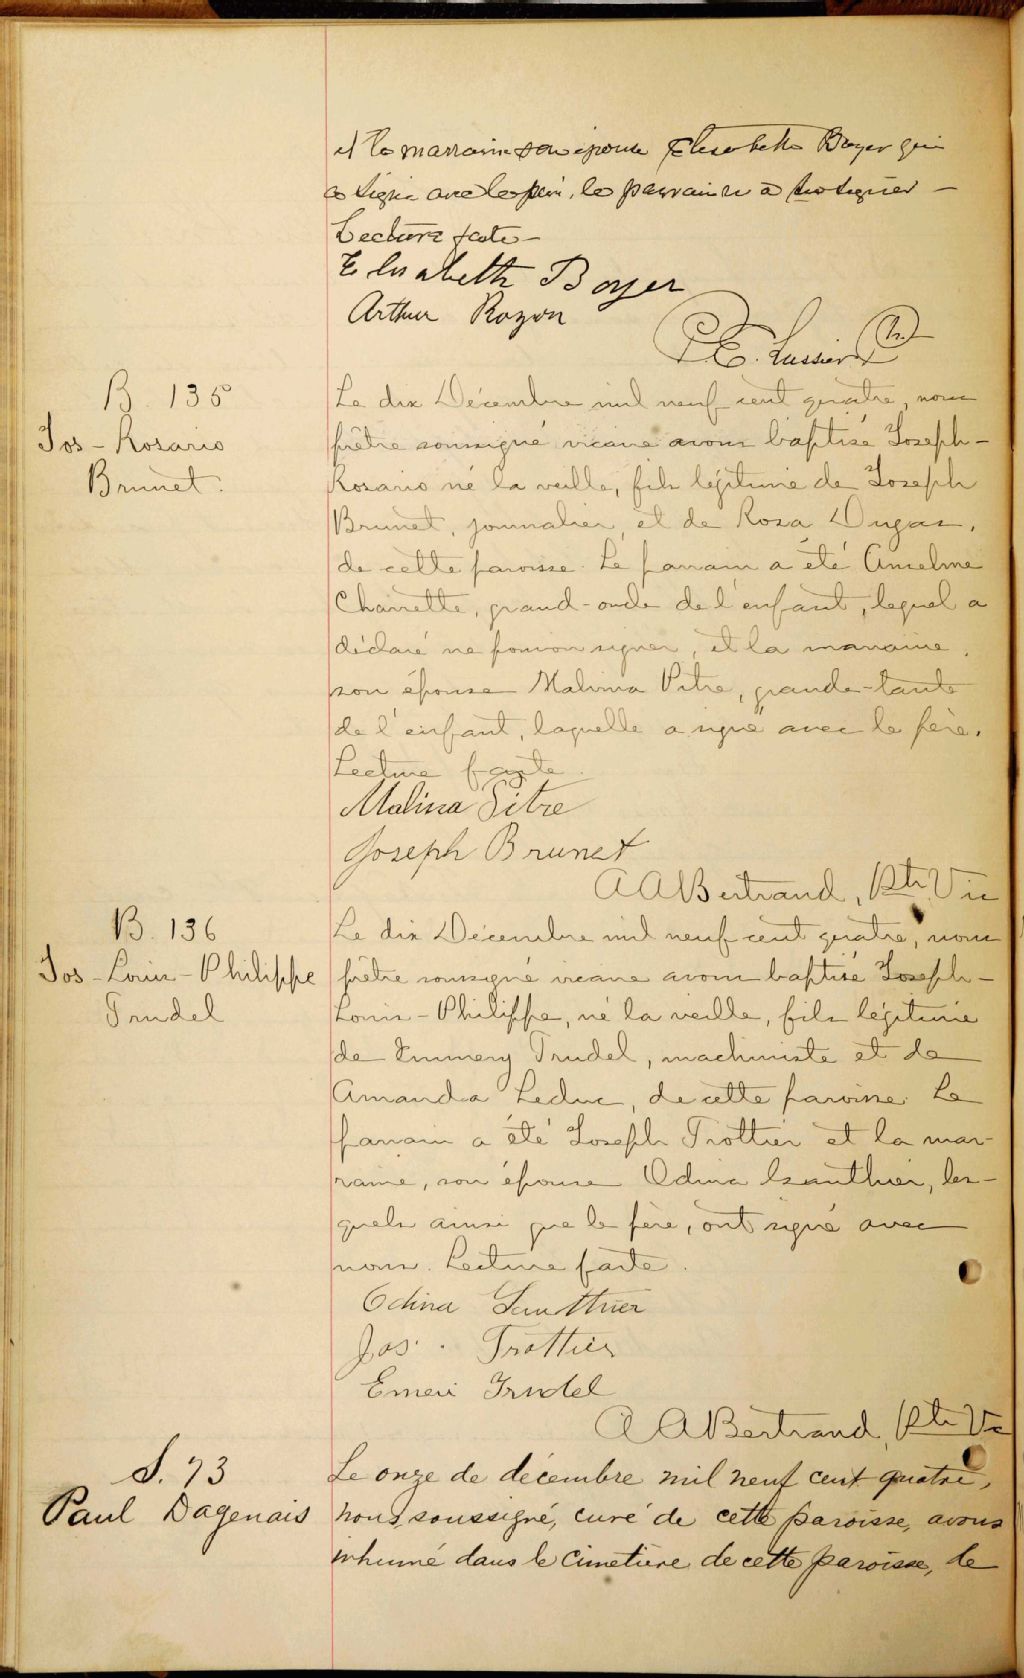 et la marraine son épouse Elisabeth Boyer qui
a signé avec le père, le parrain n'a su signer –
Lecture faite –
Elisabeth Boyer
Arthur Rozon
P. E. Lussier Ptr.
B. 135
Jos - Rosario
Brunet.
Le dix Décembre mil neuf cent quatre, nous
prêtre soussigné vicaire avons baptisé Joseph-
Rosario né la veille, fils légitime de Joseph
Brunet, journalier, et de Rosa Dugas,
de cette paroisse. Le parrain a été Anselme
Charrette, grand-oncle de l'enfant, lequel a
déclaré ne pouvoir signer, et la marraine,
son épouse Malvina Pitre, grande-tante
de l'enfant, laquelle a signé avec le père.
Lecture faite.
Malvina Pitre
Joseph Brunet
A A Bertrand, Ptr Vic
B. 136
Jos - Louis - Philippe
Trudel
Le dix Décembre mil neuf cent quatre, nous
prêtre soussigné vicaire avons baptisé Joseph-
Louis-Philippe, né la veille, fils légitime
de Emmery Trudel, machiniste et de
Amanda Leduc, de cette paroisse. Le
parrain a été Joseph Trottier et la mar-
raine, son épouse Odina Gauthier, les-
quels ainsi que le père, ont signé avec
nous. Lecture faite.
Odina Gauthier
Jos. Trottier
Emeri Trudel
A A Bertrand, Ptr Vic
S. 73
Paul Dagenais
Le onze de décembre mil neuf cent quatre,
nous, soussigné, curé de cette paroisse, avons
inhumé dans le cimetière de cette paroisse, le